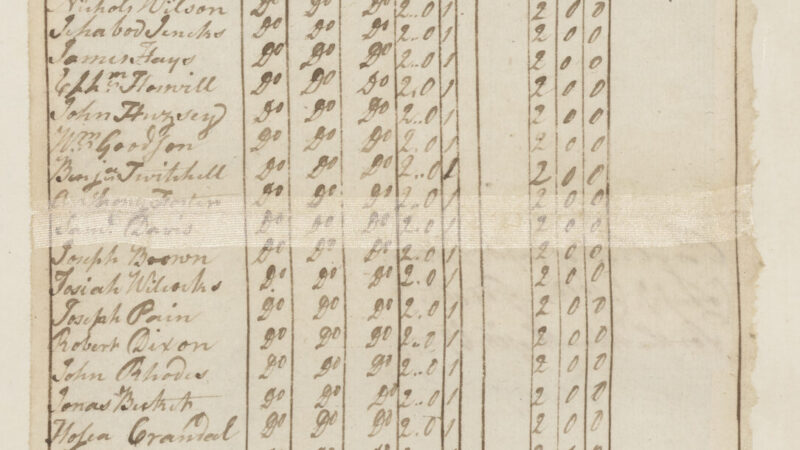 Nichols Wilson Do Do Do 2..0 1 2 0 0
Ichabod Jencks Do Do Do 2..0 1 2 0 0
James Hays Do Do Do 2..0 1 2 0 0
Ephm Hamill Do Do Do 2.0 1 2 0 0
John Huzsey Do Do Do 2..0 1 2 0 0
Wm Goodson Do Do Do 2.0 1 2 0 0
Benjn Twitchell Do Do Do 2..0 1 2 0 0
Anthony Do Do Do 2..0 1 2 0 0
Saml Davis Do Do Do 2..0 1 2 0 0
Joseph Brown Do Do Do 2.0 1 2 0 0
Josiah Wilcocks Do Do Do 2.0 1 2 0 0
Joseph Pain Do Do Do 2.0 1 2 0 0
Robert Dixon Do Do Do 2..0 1 2 0 0
John Rhodes Do Do Do 2..0 1 2 0 0
Jonas Do Do Do 2.0 1 2 0 0
Hosea Crandal Do Do Do 2.0 1 2 0 0